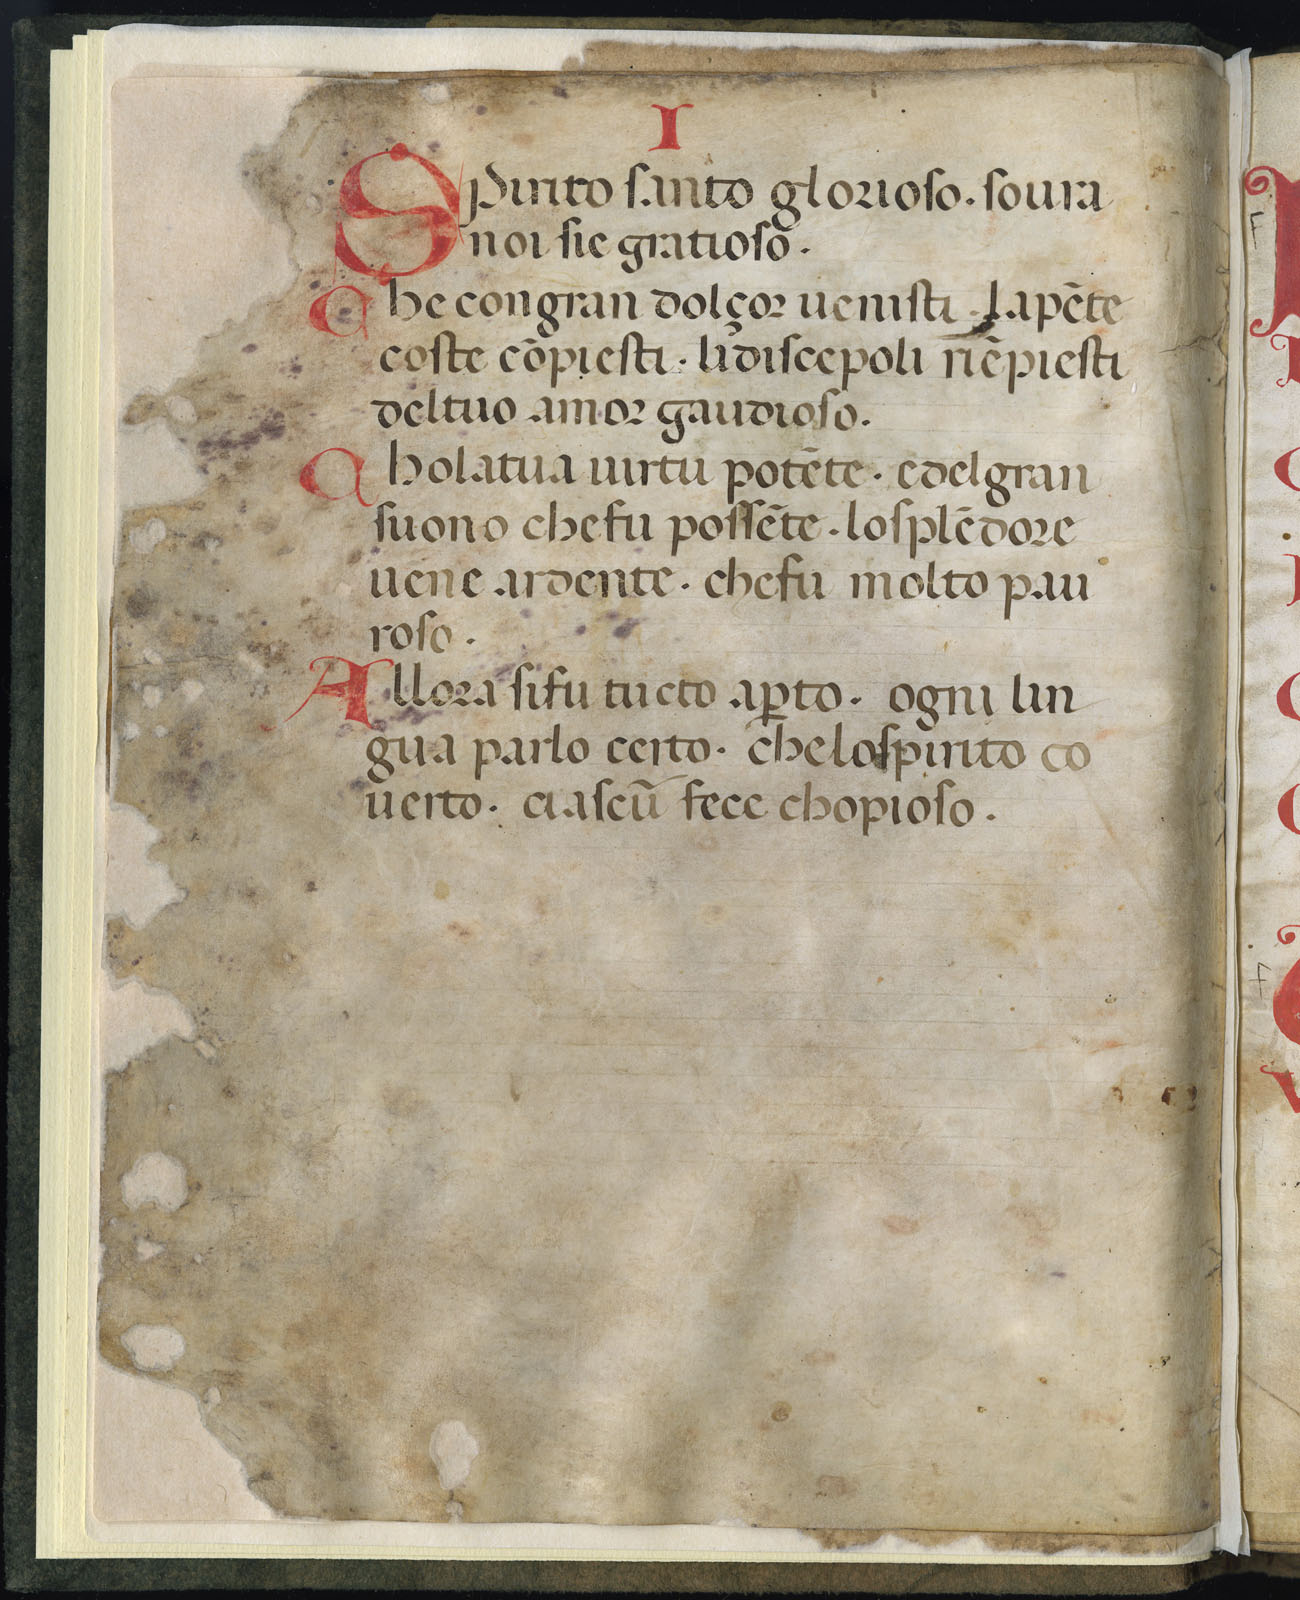 I
Spirito sancto glorioso. soura
noi sie gratioso.
Che congran dolçor uenisti. Lapēte
coste cōpiesti. li discepoli riēpiesti
deltuo amor gaudioso.
Cholatua uirtu potēte. edelgran
suono chefu possēte. losplēdore
uene ardente. chefu molto pau
roso.
Allora sifu tucto apto. ogni lin
gua parlo certo. chelospirito co
uerto. ciascū fece chopioso.